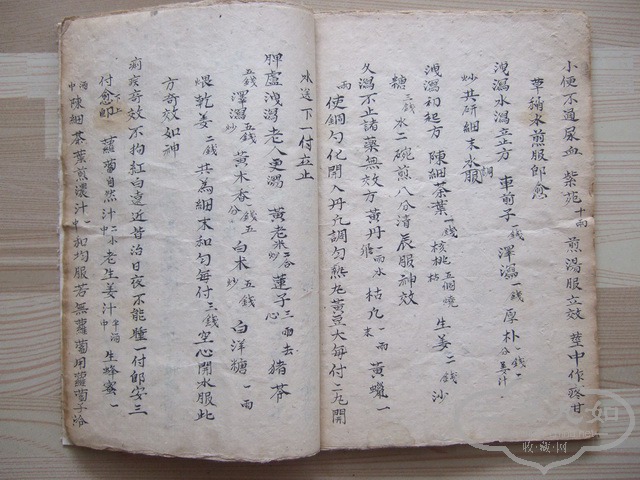 小便不通尿血 紫苑十兩 煎湯服立效 莖中作疼甘
草稍水煎服即愈
洩瀉水瀉立方 車前子一錢 澤瀉一錢 厚朴一錢姜汁
炒 共研細末水調服
洩瀉初起方 陳細茶葉一錢 核桃五個燒枯 生姜二錢 沙
糖三錢 水二碗煎八分清晨服神效
久瀉不止諸藥無效方 黃丹一兩水 枯凡一兩末 黃蠟一
兩 使銅勺化開入丹凡調勻熱丸黃豆大每付二丸開
水送下一付立止
脾虛洩瀉老人更瀉 黃老米炒二合 蓮子三兩去心 猪苓
五錢 澤瀉五錢炒 黃木香一錢五分 白朮五錢炒 白洋糖一兩
煨乾姜二錢 共為細末和勻每付三錢空心開水服此
方奇效如神
痢疾奇效不拘紅白遠近昔治日夜不能睡一付即安三
付愈即 蘿蔔自然汁二小中 老生姜汁半酒中 生蜂蜜一
酒中 陳細茶葉煎濃汁一中 和均服若無蘿蔔用蘿蔔子治
收·藏·网